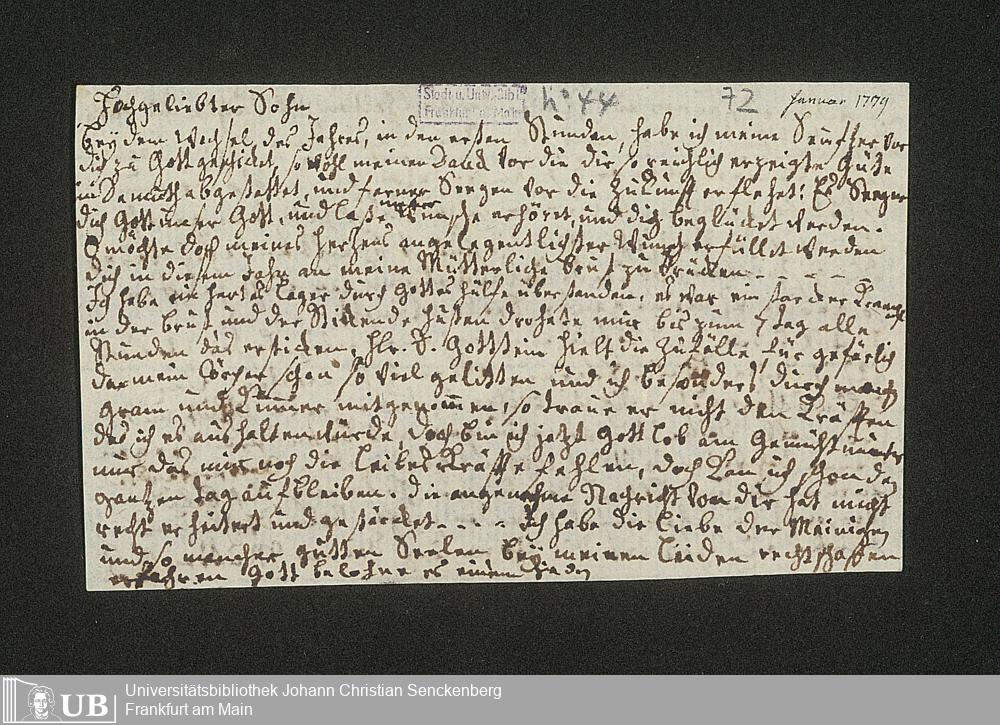 Hochgeliebter Sohn
Stadt u. Univ. Bibl.
Frankfurt a. Main
No 44
72
Januar 1779
bey dem Wechsel, des Jahres, in den ersten Stunden, habe ich meine Seufzer vor
dich zu Gott geschicket, so wohl meinen Danck vor die dir so reichlich erzeigte Güte
in Demuth abgestattet, und ferner Seegen vor die Zukunft erflehet: Es Seegne
dich Gott unser Gott, und laße meine Wünsche erhöret, und dich beglücket werden.
O möchte doch meines hertzens angelegentlichster Wunsch erfüllet werden
dich in diesem Jahr an meine Mütterliche brust zu drücken - - - -
Ich habe ein hartes Lager durch Gottes hülfe überstanden, es war ein starcker Krampf
in der brust, und der Stickende husten drohete mir bis zum 7 tag alle
Stunden das ersticken, Hr. D. Gottstein hielt die Zufälle für gefärlich
da mein Cörper schon so viel gelitten und ich besonders durch manch
gram und Kummer mitgenommen, so traue er nicht den Kräfften
das ich es aushalten würde, doch bin ich jetzt Gott lob am Gemüht munter
nur das mir noch die leibes Kräffte fehlen, doch kan ich schon den
gantzen tag aufbleiben. die angenehme Nachricht von dir hat mich
recht erheitert und gestärcket - - - - Ich habe die liebe der Meinigen
und so mancher gutten Seelen bey meinen leiden rechtschaffen
erfahren Gott belohne es einem jeden
UB
Universitätsbibliothek Johann Christian Senckenberg
Frankfurt am Main